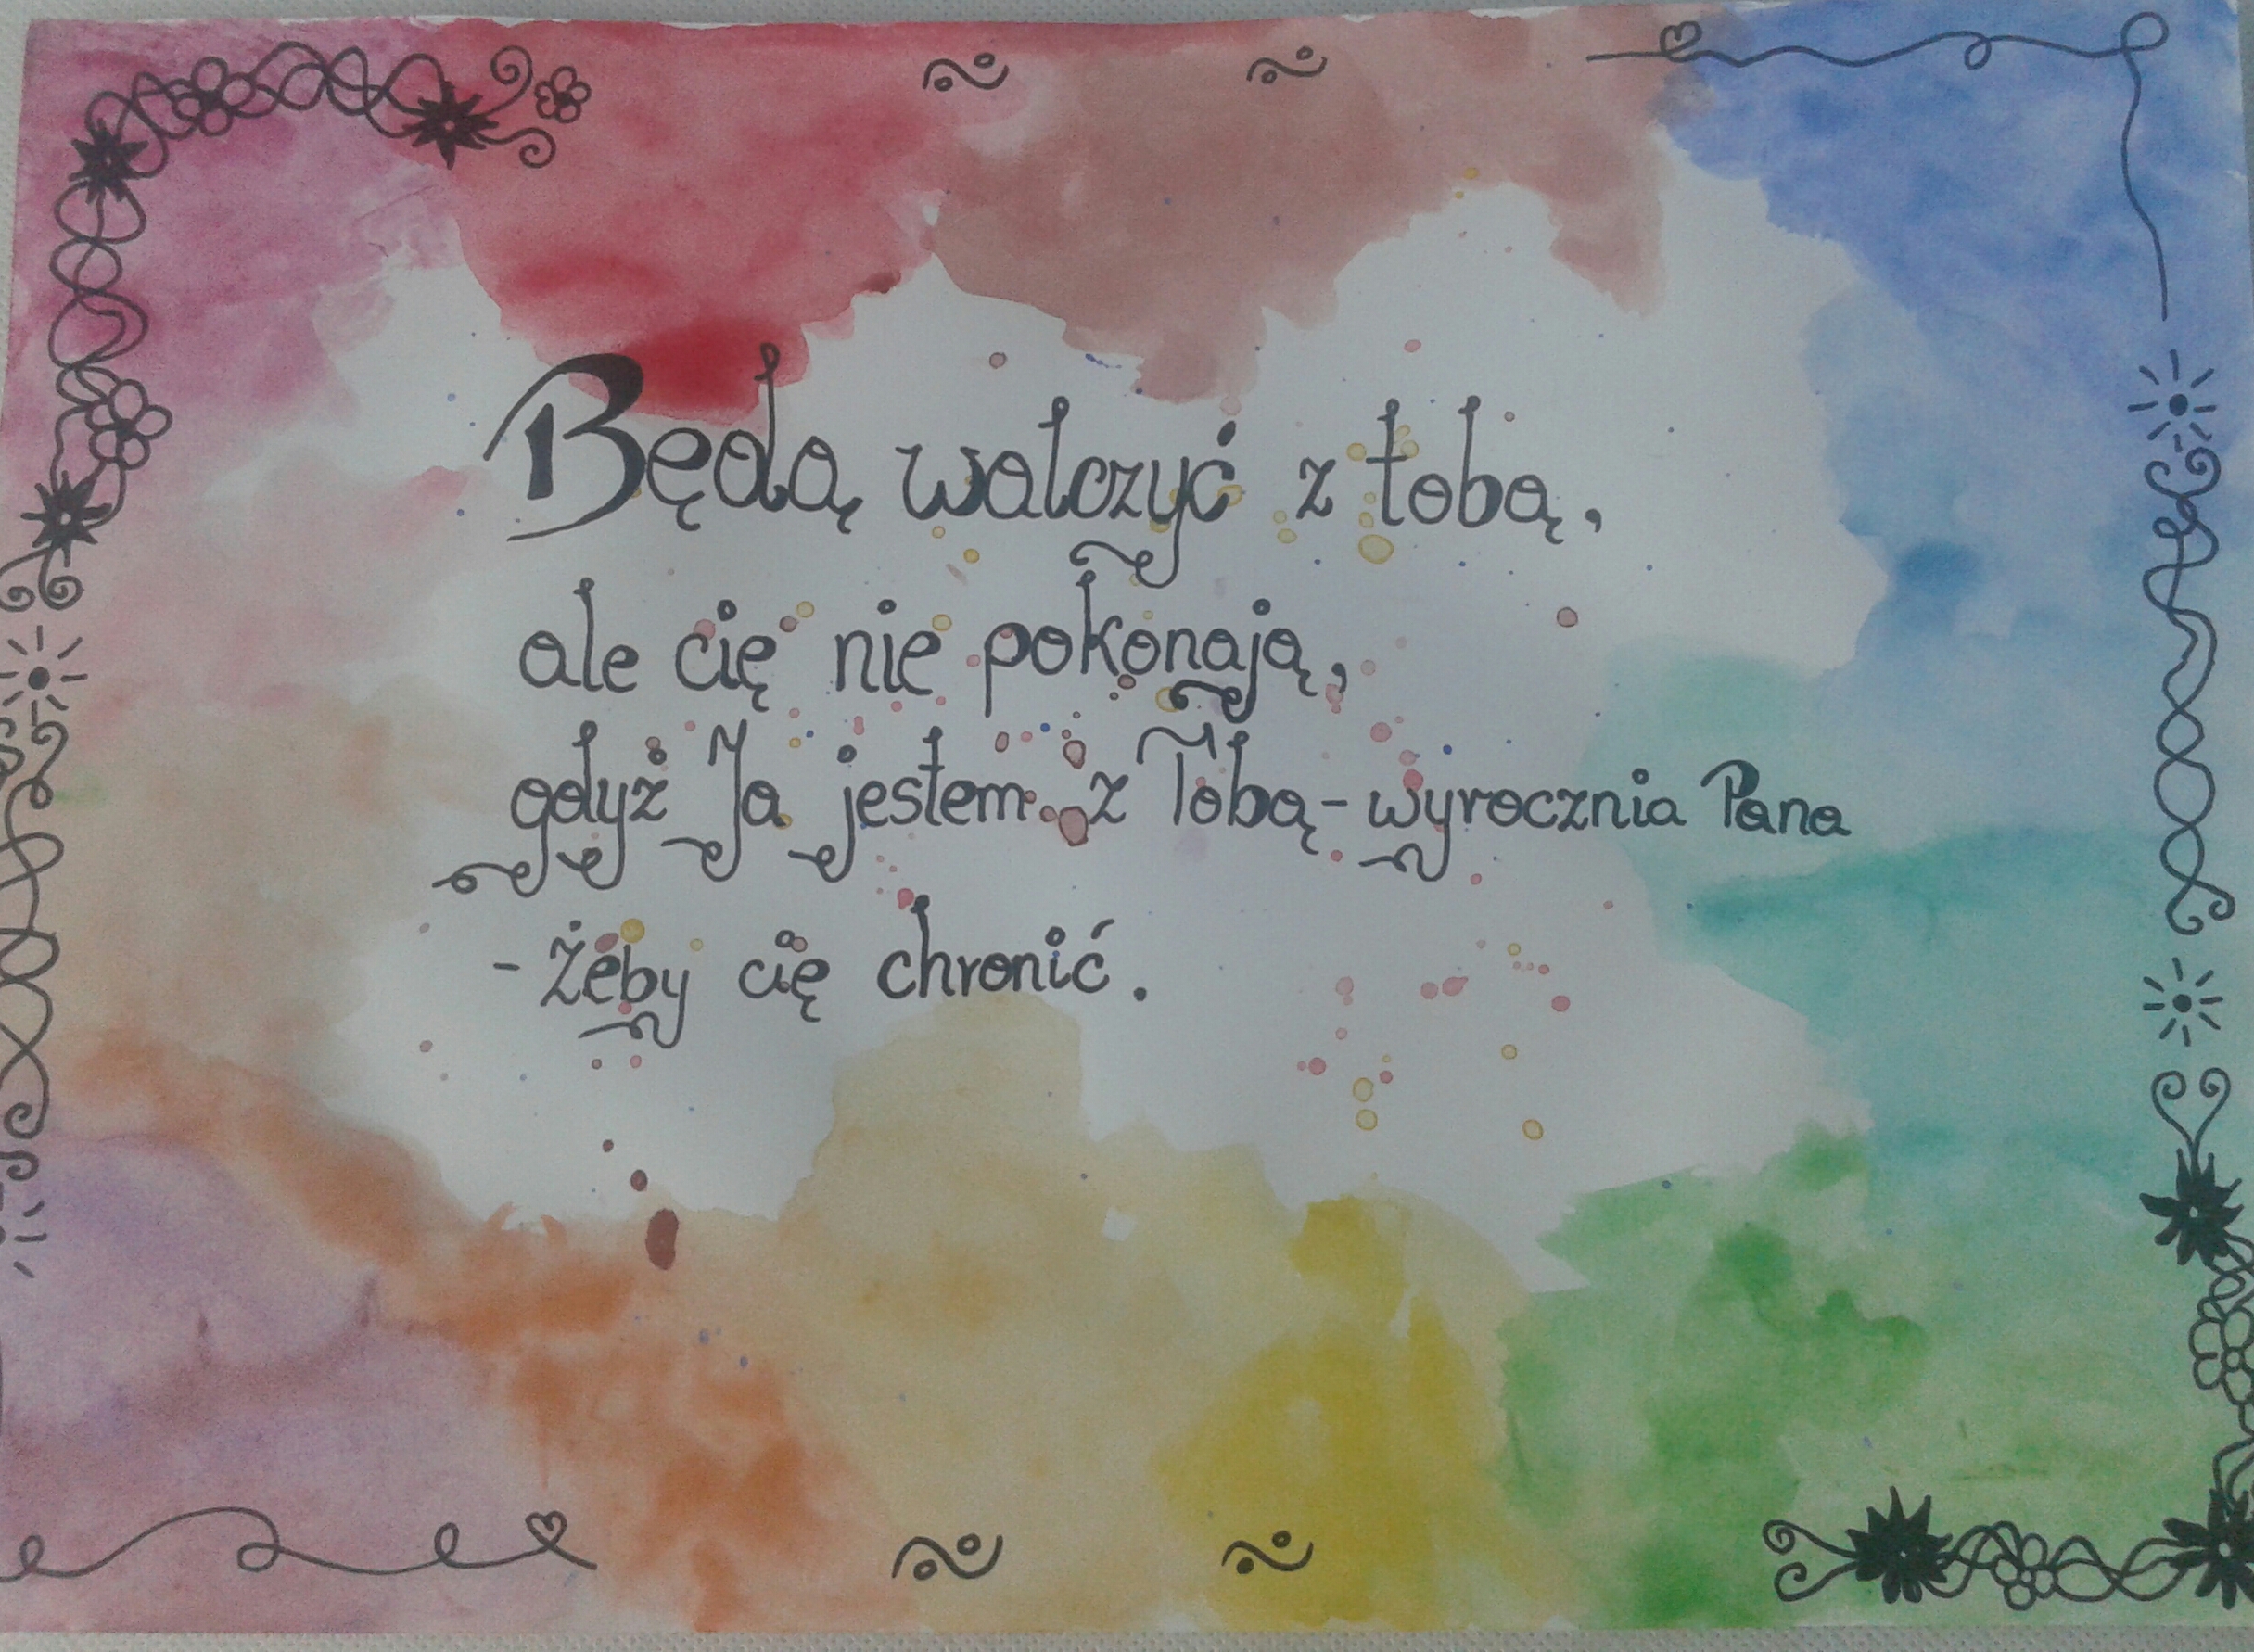 Będą walczyć z tobą,
ale cię nie pokonają,
gdyż Ja jestem z Tobą - wyrocznia Pana
- żeby cię chronić.